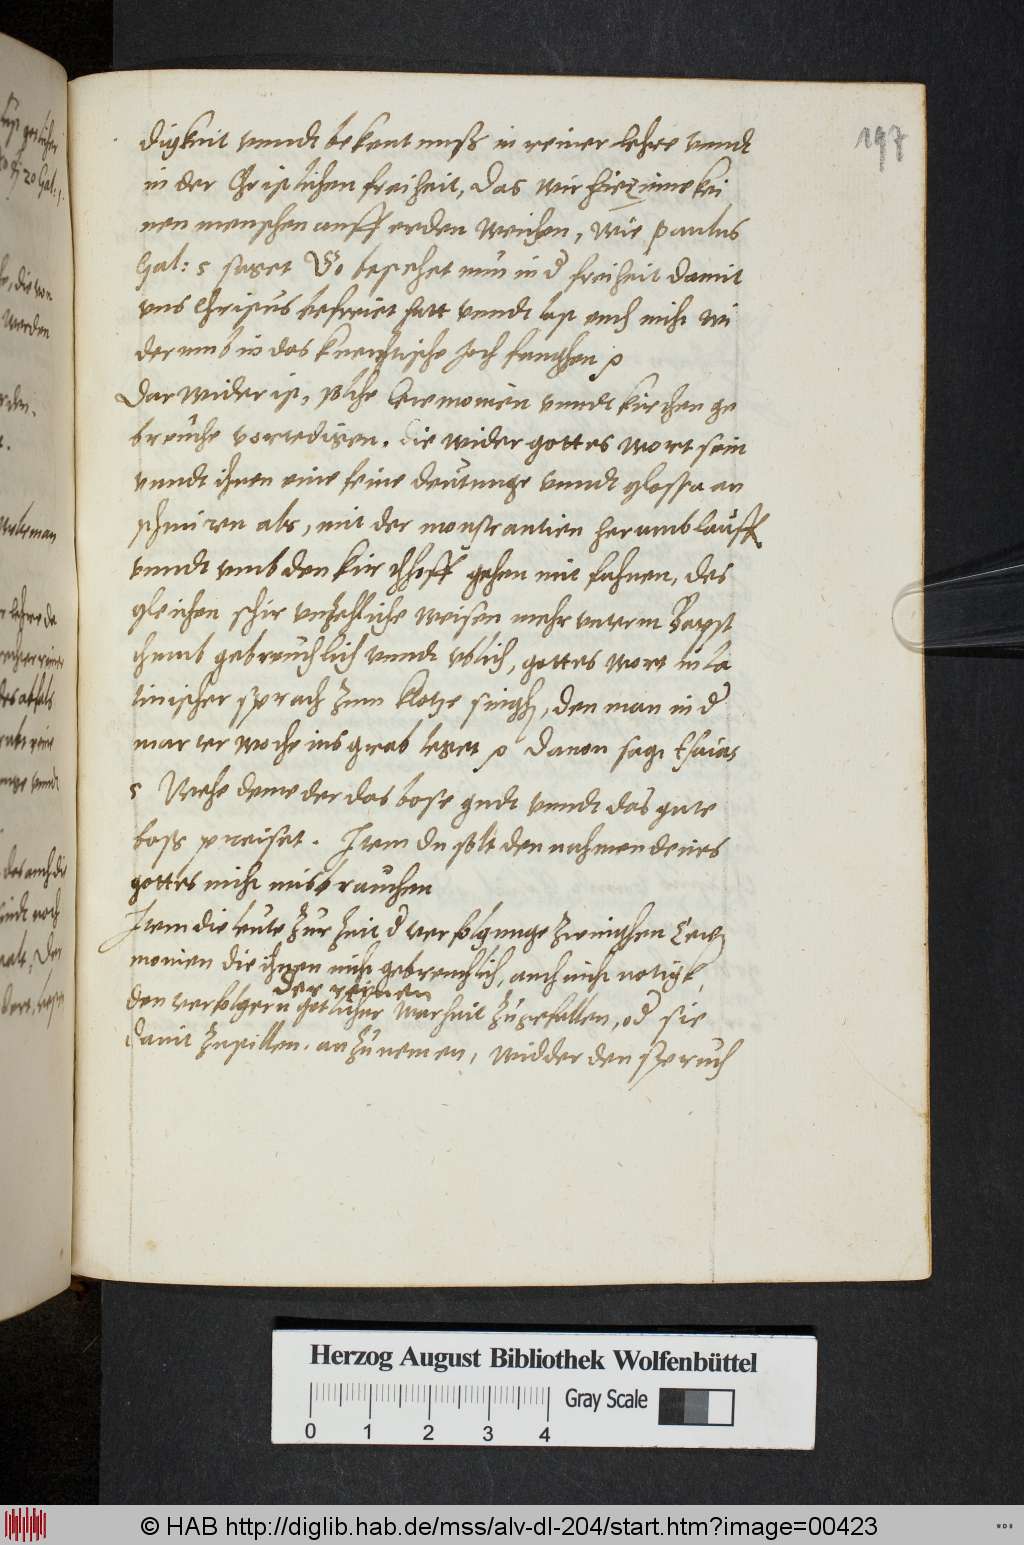 197
digkeit vnndt bekentnuss in reiner lehre vnndt
in der Christlichen freiheit, das wir hierinne kei
nen menschen auff erden weichen, wie Paulus
Gal: 5 saget So bestehet nun in d freiheit damit
vns Christus befreiet hatt vnndt last euch nicht wi
derumb in das knechtische Joch fanghen
Dar wider ist, solche Ceremonien vnndt kirchen ge
breuche vortedigen. die wider gottes wort sein
vnndt ihnen eine feine deutunge vnndt glossa an
schmiren als, mit der monstrantien herumb lauff
vnndt vmb den kirchhoff gehen mit fahnen, des
gleichen schir vnzehliche weisen mehr vnterm Bapst
thumb gebreuchlich vnndt vblich, gottes wort in la
tinischer sprach zum klotze singh, den man in d
marter woche ins grab leget Dauon sagt Esaias
5 Wehe deme der das bose gudt vnndt das gute
boss preiset. Item du solt den nahmen deines
gottes nicht misbrauchen
Item die leute zur zeit d verfolgunge zwinghen Cere
monien die ihnen nicht gebreuchlich, auch nicht notigk,
der reinen
den verfolgern gotlicher warheit zugefallen, od sie
damit zustillen. anzunemen, widder den spruch
Herzog August Bibliothek Wolfenbüttel
Gray Scale
0 1 2 3 4
© HAB http://diglib.hab.de/mss/alv-dl-204/start.htm?image=00423